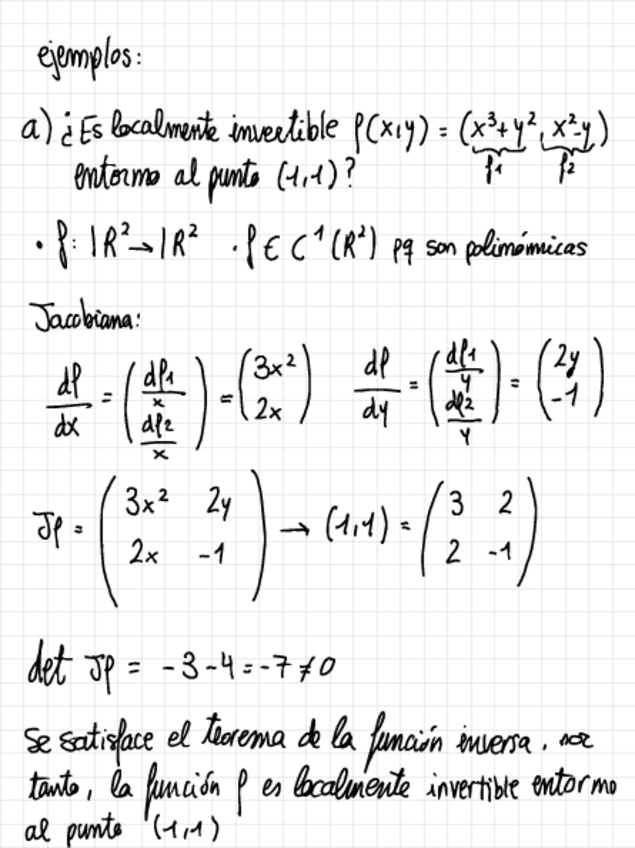 ejemplos:
a) ¿Es localmente invertible f(x,y) = (x³+y², x²-y)
f1 f2
entorno al punto (1,1)?
· f: IR² → IR² · f ∈ C¹(IR²) pq son polinómicas
Jacobiana:
df/dx = (df1/x df2/x) = (3x² 2x) df/dy = (df1/y df2/y) = (2y -1)
Jf = (3x² 2y
2x -1) → (1,1) = (3 2
2 -1)
det Jf = -3-4=-7≠0
Se satisface el teorema de la función inversa, por
tanto, la función f es localmente invertible entorno
al punto (1,1)